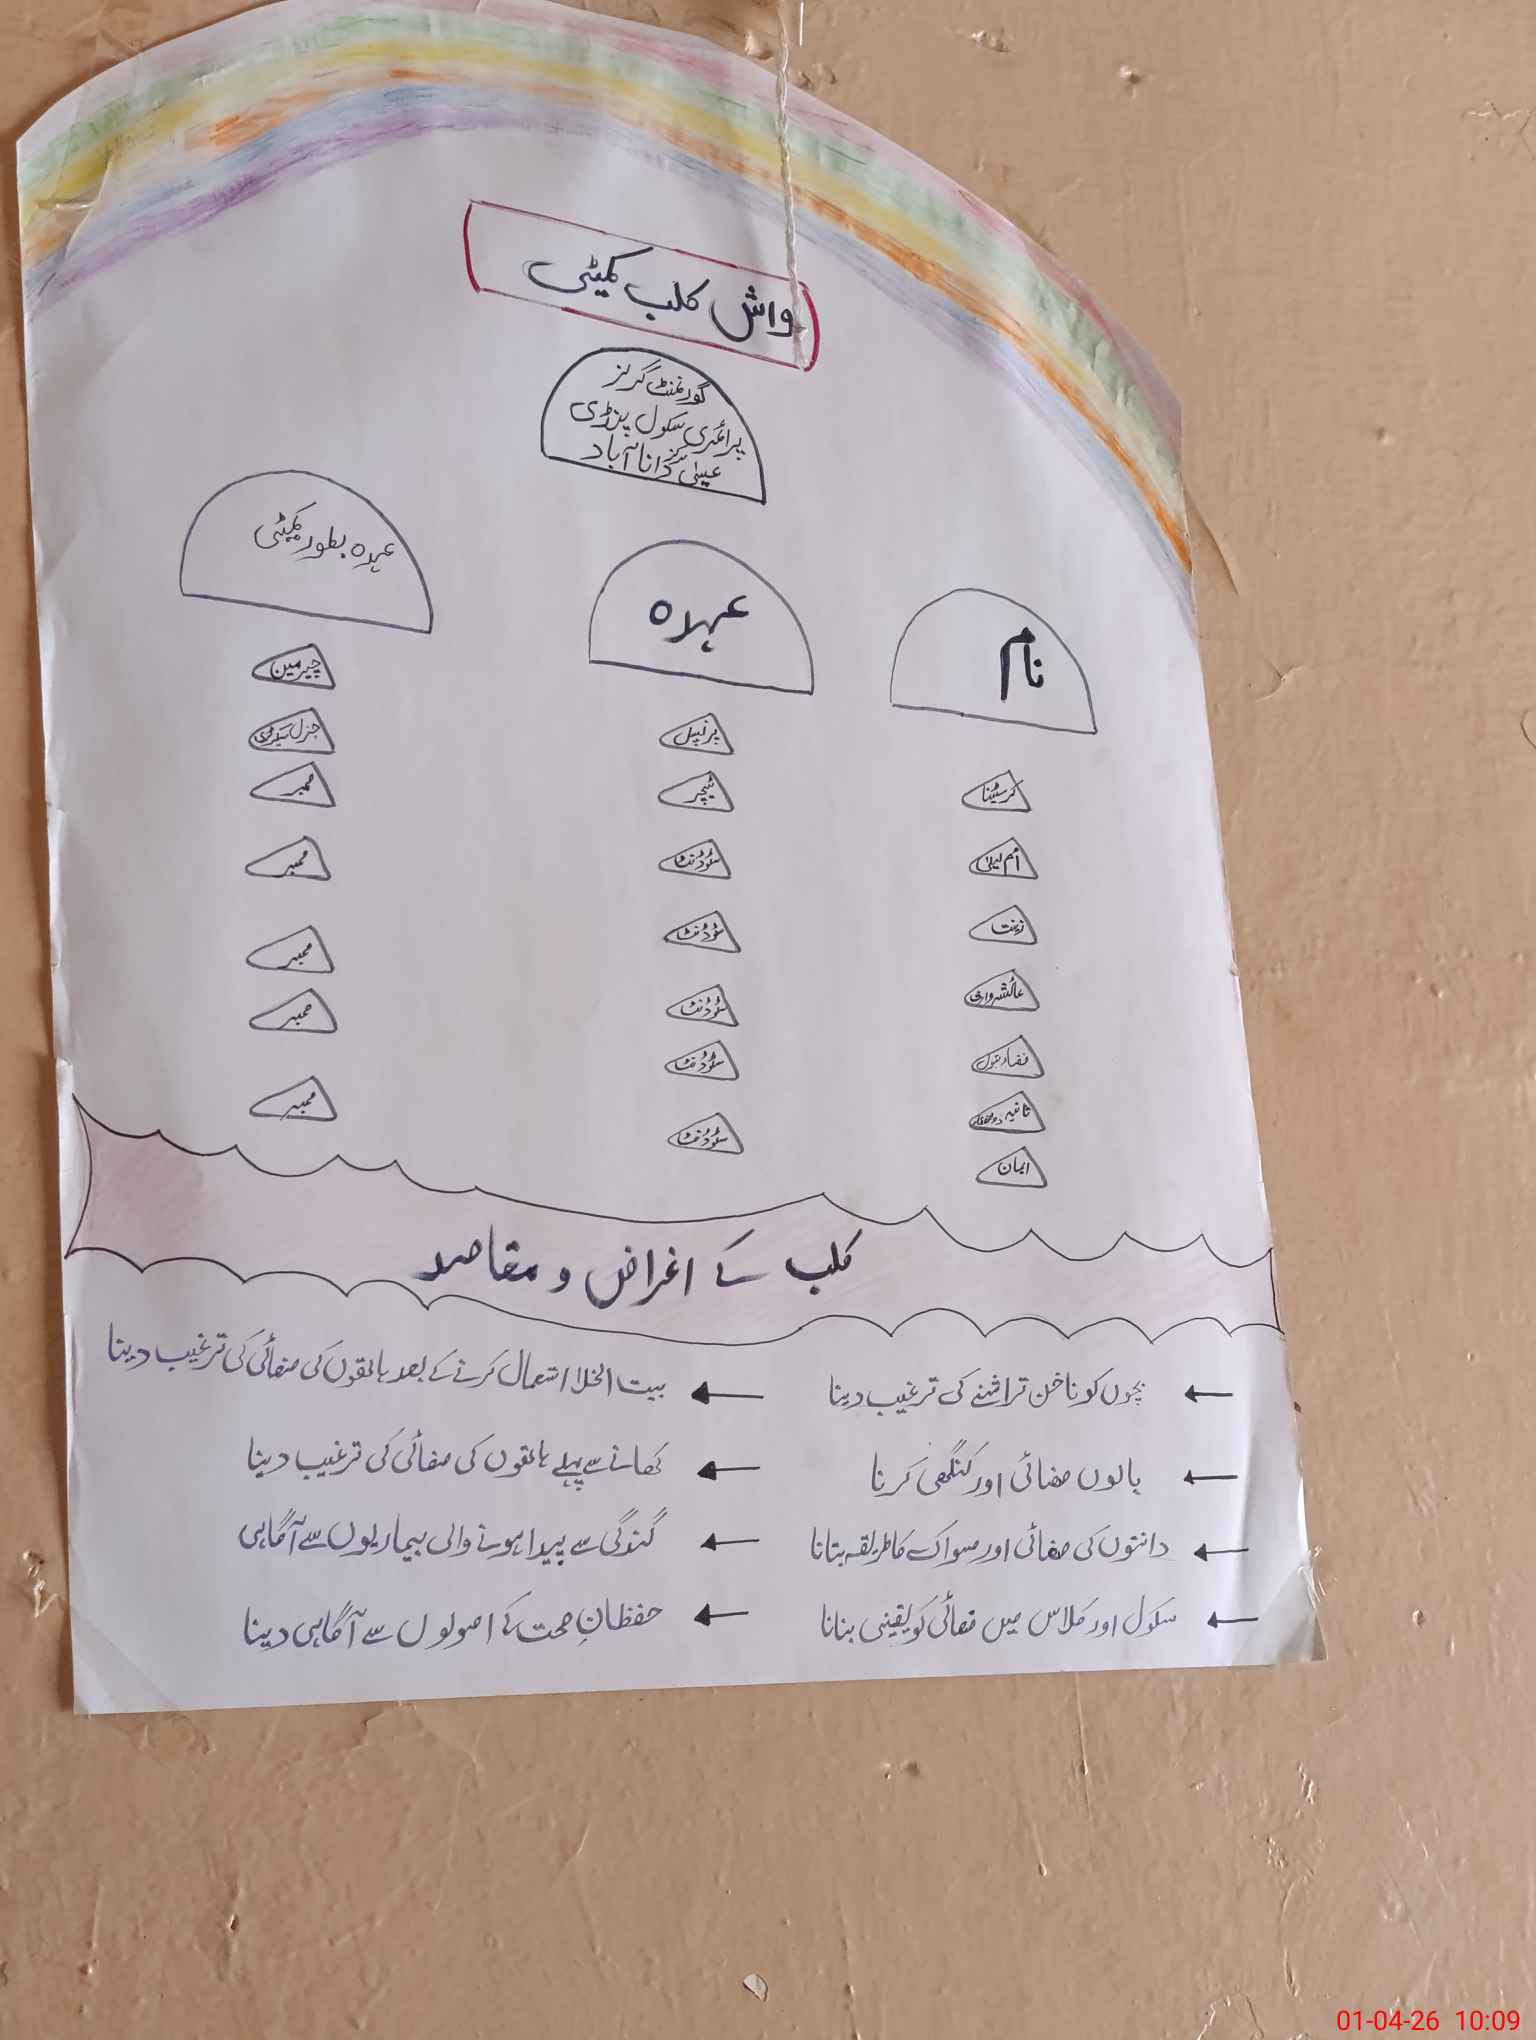 واش کلب کمیٹی
گورنمنٹ گرلز
پرائمری سکول پنڈی
عیسیٰ مرکز داناآباد
نام
عہدہ
عہدہ بطور کمیٹی
کرسٹینا
پرنسپل
چیرمین
اُم لیلیٰ
ٹیچر
جنرل سیکرٹری
زینت
سٹوڈنٹ
ممبر
عائشہ وارثی
سٹوڈنٹ
ممبر
فضاء بتول
سٹوڈنٹ
ممبر
ثانیہ
سٹوڈنٹ
ممبر
ایمان
سٹوڈنٹ
ممبر
کلب کے اغراض و مقاصد
بچوں کو ناخن تراشنے کی ترغیب دینا
بالوں صفائی اور کنگھی کرنا
دانتوں کی صفائی اور مسواک کا طریقہ بتانا
سکول اور کلاس میں صفائی کو یقینی بنانا
بیت الخلا استعمال کرنے کے بعد ہاتھوں کی صفائی کی ترغیب دینا
کھانے سے پہلے ہاتھوں کی صفائی کی ترغیب دینا
گندگی سے پیدا ہونے والی بیماریوں سے آگاہی
حفظانِ صحت کے اصولوں سے آگاہی دینا
01-04-26 10:09